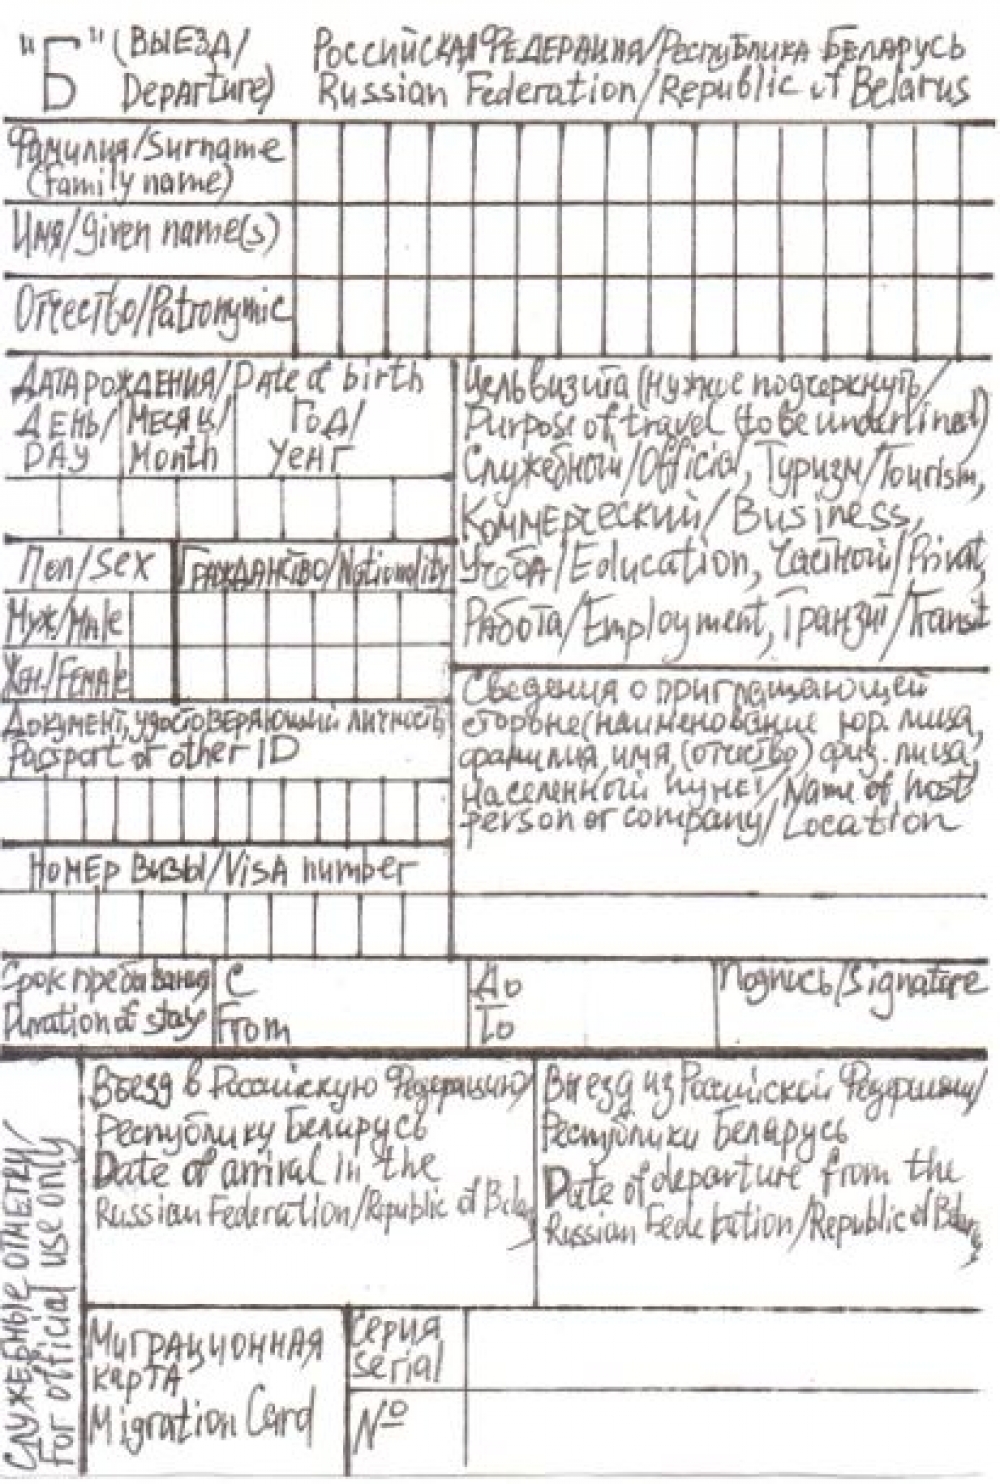 "Б" (ВЫЕЗД/
Departure)
Российская Федерация/Республика Беларусь
Russian Federation/Republic of Belarus
Фамилия/Surname
(Family name)
Имя/given name(s)
Отчество/Patronymic
Дата рождения/Date of birth
День/
Day
Месяц/
Month
Год/
Year
Пол/Sex
Муж/Male
Жен./Female
Гражданство/Nationality
Документ, удостоверяющий личность
Passport or other ID
Номер визы/Visa number
Цель визита (нужное подчеркнуть/
Purpose of travel (to be underlined)
Служебный/Official, Туризм/Tourism,
Коммерческий/Business,
Учёба/Education, Частный/Privat,
Работа/Employment, Транзит/Transit
Сведения о приглащающей
стороне (наименование юр. лица,
фамилия, имя, (отчество) физ. лица,
населенный пункт/Name of host
person or company/Location
Срок пребывания
Duration of stay
С
From
До
To
Подпись/Signature
Служебные отметки/
For official use only
Въезд в Российскую Федерацию/
Республику Беларусь
Date of arrival in the
Russian Federation/Republic of Belarus
Выезд из Российской Федерации/
Республики Беларусь
Date of departure from the
Russian Federation/Republic of Belarus
Миграционная
карта
Migration Card
Серия
serial
№